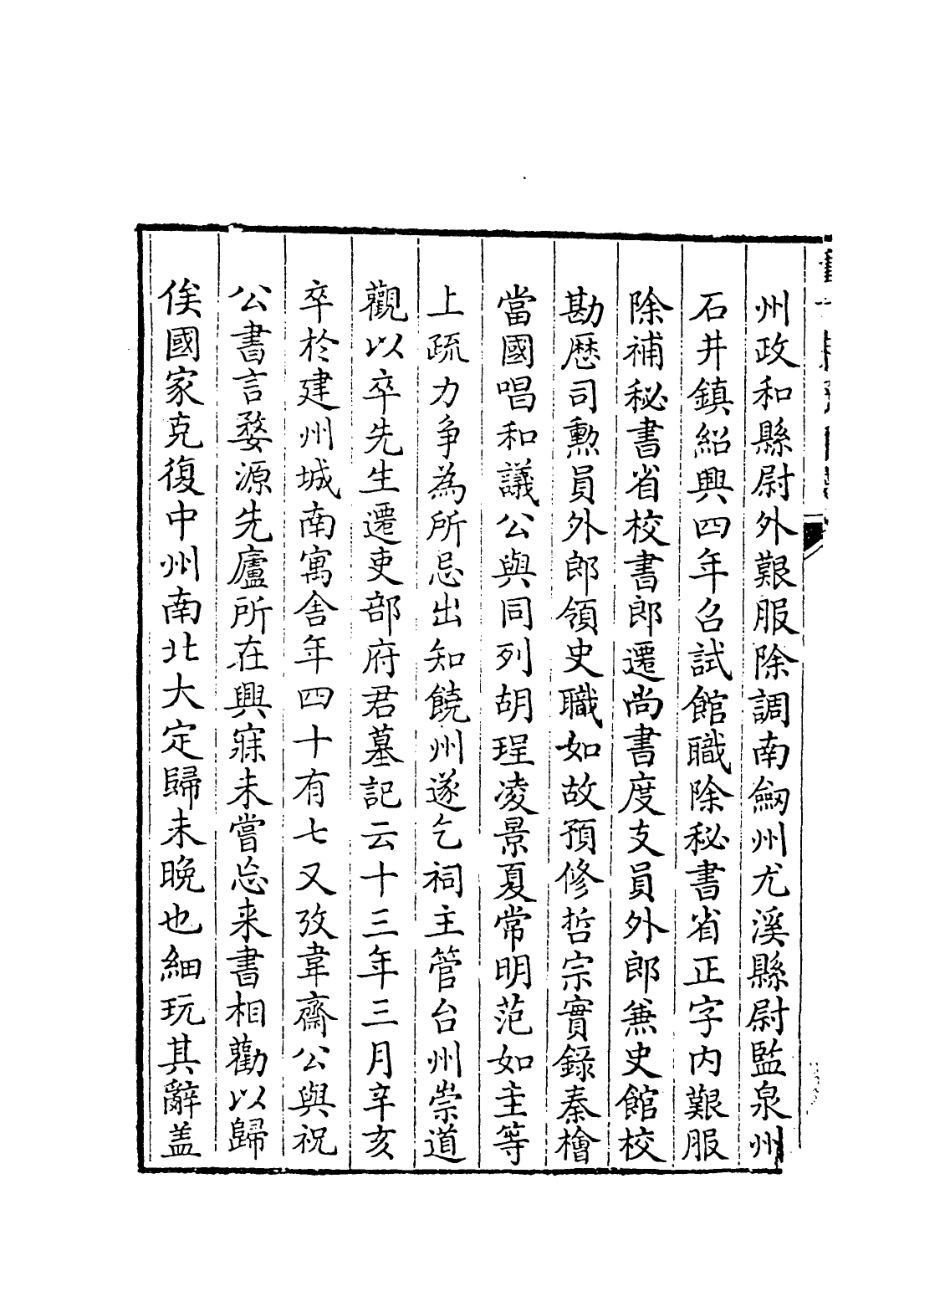 州政和縣尉外艱服除調南劒州尤溪縣尉監泉州
石井鎮紹興四年召試館職除秘書省正字内艱服
除補秘書省校書郎遷尚書度支員外郎兼史館校
勘歴司勲員外郎領史職如故預修哲宗實錄秦檜
當國唱和議公與同列胡珵凌景夏常明范如主等
上疏力争為所忌出知饒州遂乞祠主管台州崇道
觀以卒先生遷吏部府君墓記云十三年三月辛亥
卒於建州城南寓舍年四十有七又攷韋齋公與祝
公書言婺源先廬所在興寐未嘗忘来書相勸以歸
俟國家克復中州南北大定歸未晩也細玩其辭盖